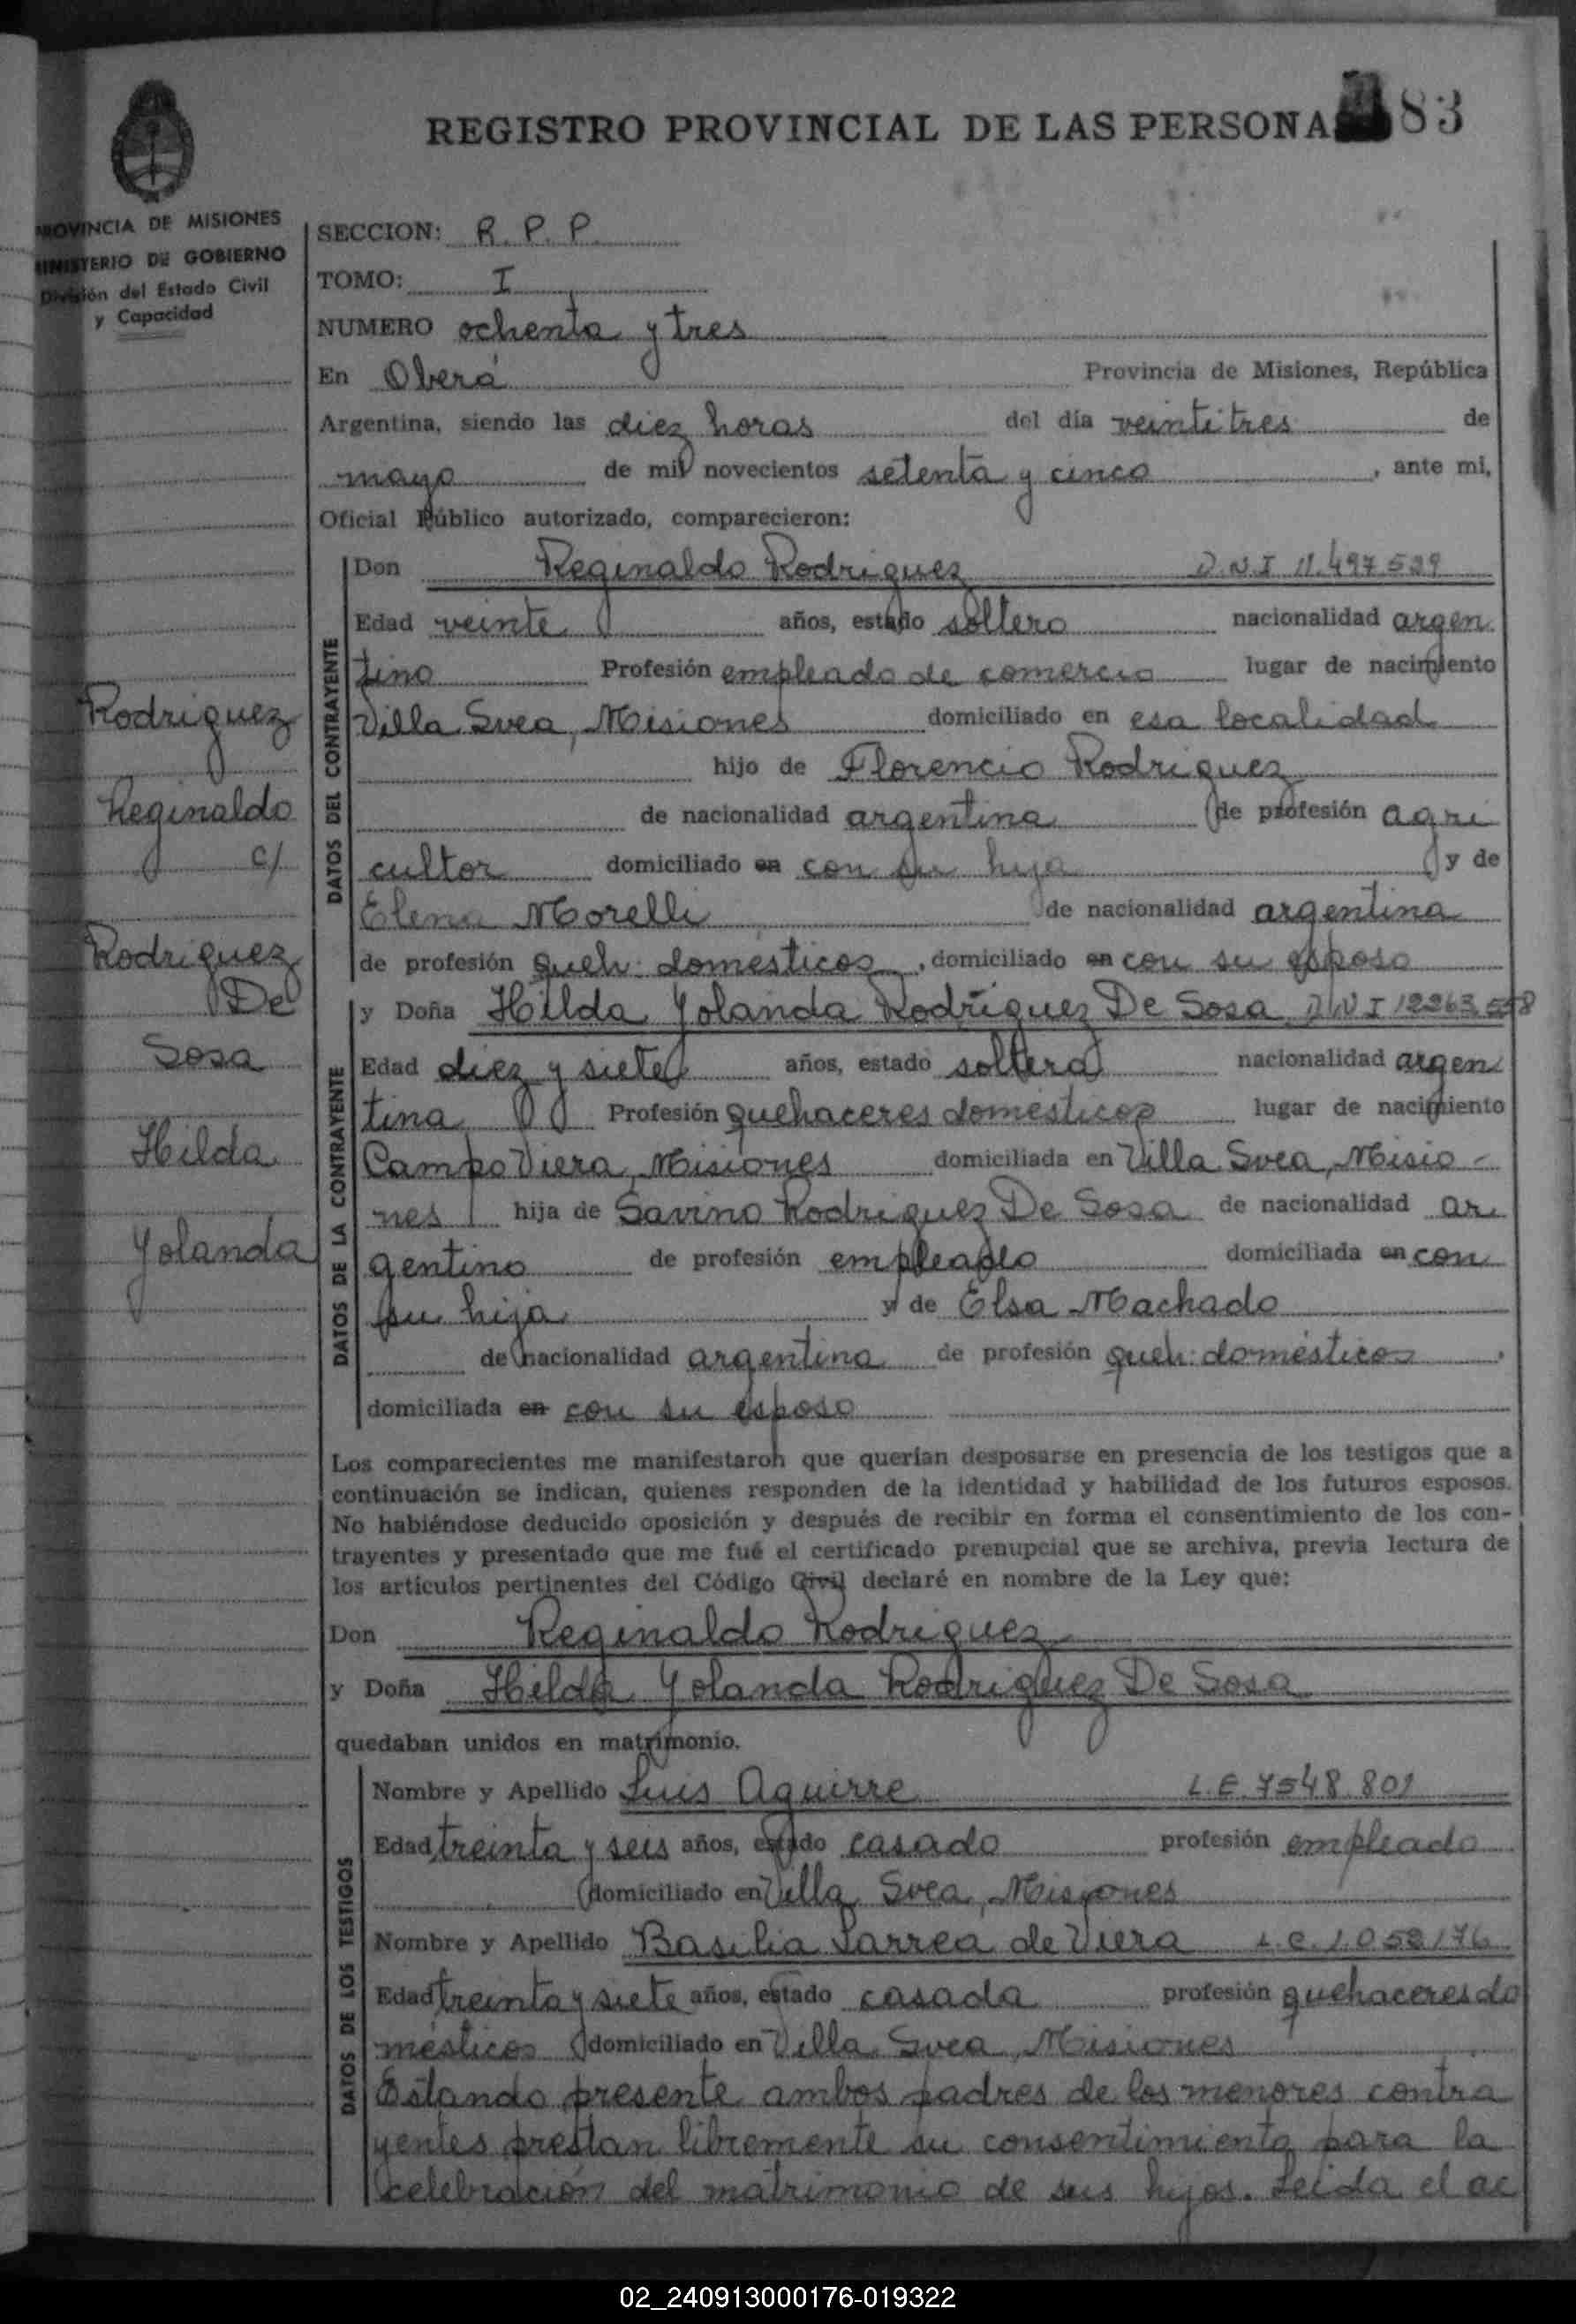 REGISTRO PROVINCIAL DE LAS PERSONA 83
PROVINCIA DE MISIONES
MINISTERIO DE GOBIERNO
División del Estado Civil
y Capacidad
SECCION: R. P. P.
TOMO: I
NUMERO ochenta y tres
En Oberá Provincia de Misiones, República
Argentina, siendo las diez horas del día veintitres de
mayo de mil novecientos setenta y cinco, ante mi,
Oficial Público autorizado, comparecieron:
Rodriguez
Reginaldo
c/
Rodriguez
De
Sosa
Hilda
Yolanda
DATOS DEL CONTRAYENTE
Don Reginaldo Rodriguez D.N.I 11.497.529
Edad veinte años, estado soltero nacionalidad argen
tino Profesión empleado de comercio lugar de nacimiento
Villa Svea, Misiones domiciliado en esa localidad
hijo de Florencio Rodriguez
de nacionalidad argentina de profesión agri
cultor domiciliado en con su hija y de
Elena Morelli de nacionalidad argentina
de profesión queh. domésticos, domiciliado en con su esposo
DATOS DE LA CONTRAYENTE
y Doña Hilda Yolanda Rodriguez De Sosa D.N.I 12263.558
Edad diez y siete años, estado soltera nacionalidad argen
tina Profesión quehaceres domesticos lugar de nacimiento
Campo Viera, Misiones domiciliada en Villa Svea, Misio-
nes hija de Savino Rodriguez De Sosa de nacionalidad ar
gentino de profesión empleado domiciliada en con
su hija y de Elsa Machado
de nacionalidad argentina de profesión queh. domésticos,
domiciliada en con su esposo
Los comparecientes me manifestaron que querían desposarse en presencia de los testigos que a
continuación se indican, quienes responden de la identidad y habilidad de los futuros esposos.
No habiéndose deducido oposición y después de recibir en forma el consentimiento de los con-
trayentes y presentado que me fué el certificado prenupcial que se archiva, previa lectura de
los artículos pertinentes del Código Civil declaré en nombre de la Ley que:
Don Reginaldo Rodriguez
y Doña Hilda Yolanda Rodriguez De Sosa
quedaban unidos en matrimonio.
DATOS DE LOS TESTIGOS
Nombre y Apellido Luis Aguirre L.E. 7548.801
Edad treinta y seis años, estado casado profesión empleado
domiciliado en Villa Svea, Misiones
Nombre y Apellido Basilia Larrea de Viera L.C. 1.052176
Edad treinta y siete años, estado casada profesión quehaceres do
mésticos domiciliado en Villa Svea, Misiones
Estando presente ambos padres de los menores contra
yentes prestan libremente su consentimiento para la
celebración del matrimonio de sus hijos. Leida el ac
02_240913000176-019322